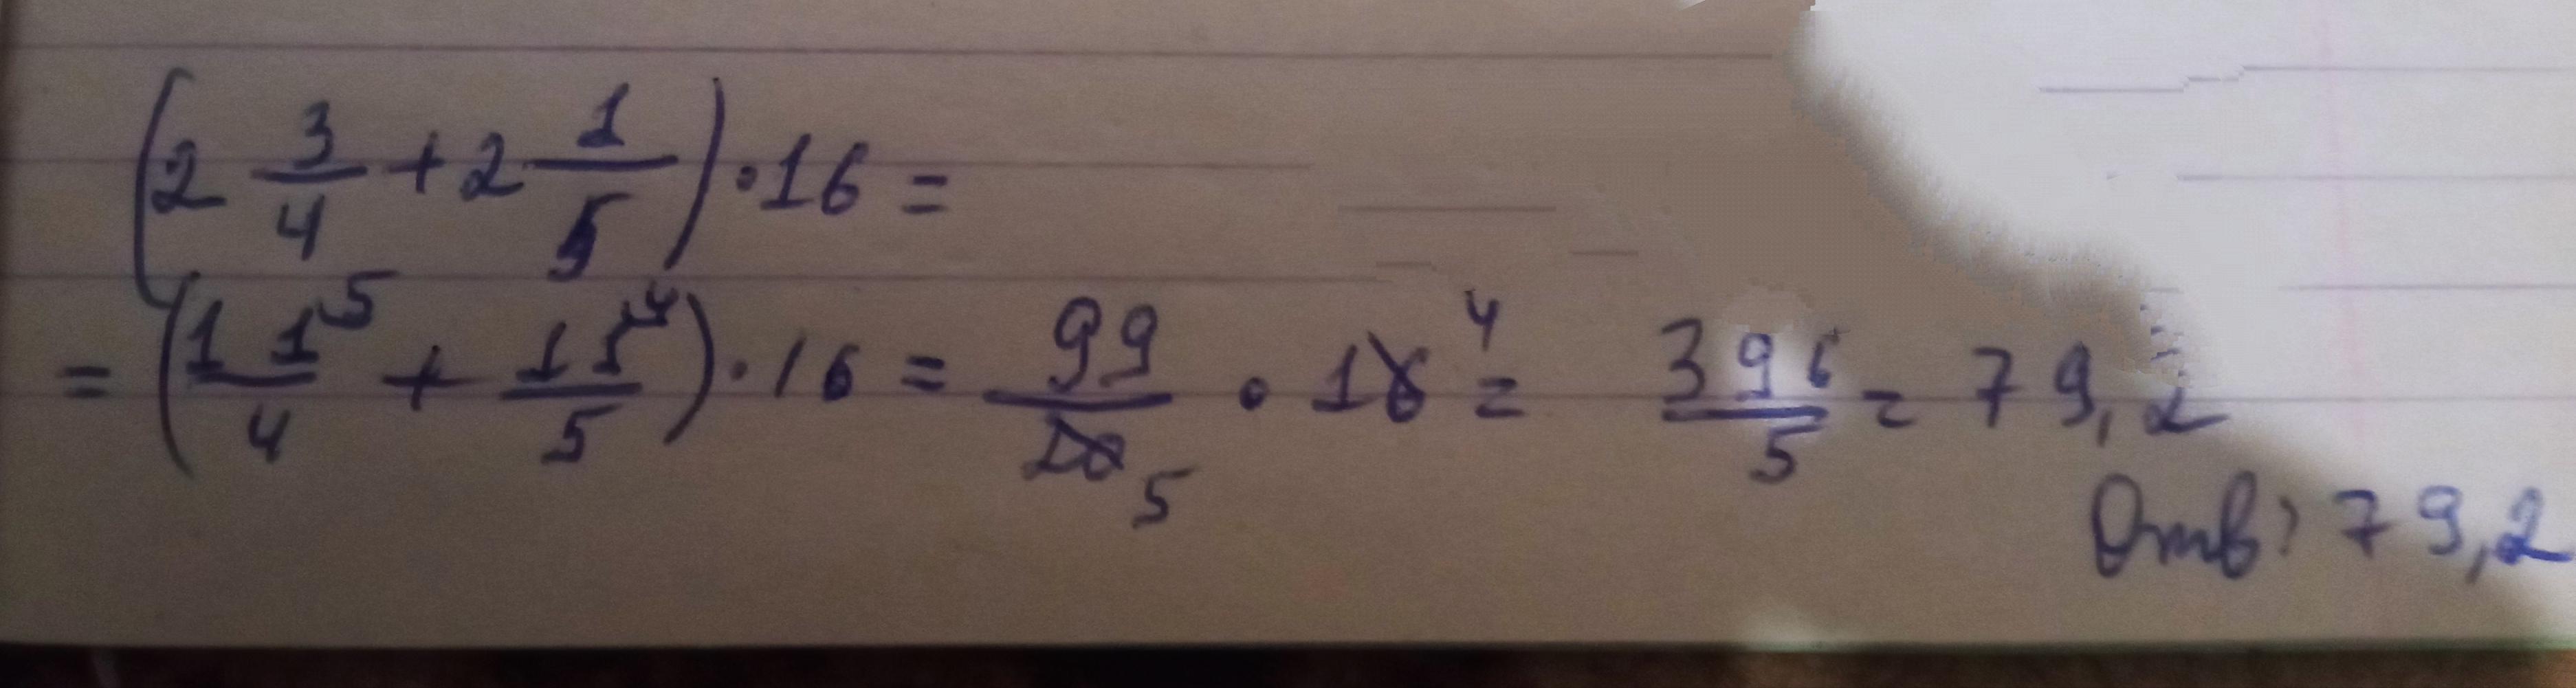 (2 3/4 + 2 1/5) · 16 =
= (11/4 ⁵ + 11/5 ⁴) · 16 = 99/20 5 · 16 ⁴ = 396/5 = 79,2
Отв: 79,2